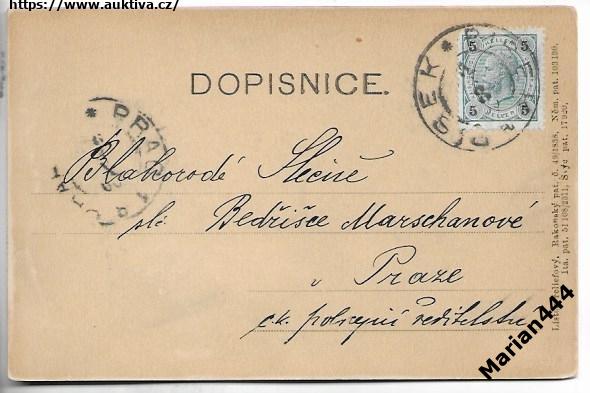 https://www.auktiva.cz/
DOPISNICE.
PÍSEK * PISEK
5 5
5 5
PRAG
Blahorodé Slečně
slč. Bedřišce Marschanové
v Praze
c.k. policejní ředitelstv
List reliefový. Rakouský pat. č. 49/1838, Něm. pat. 103190,
Ita. pat. 51108/2011, Švýc. pat. 17920.
Marian444